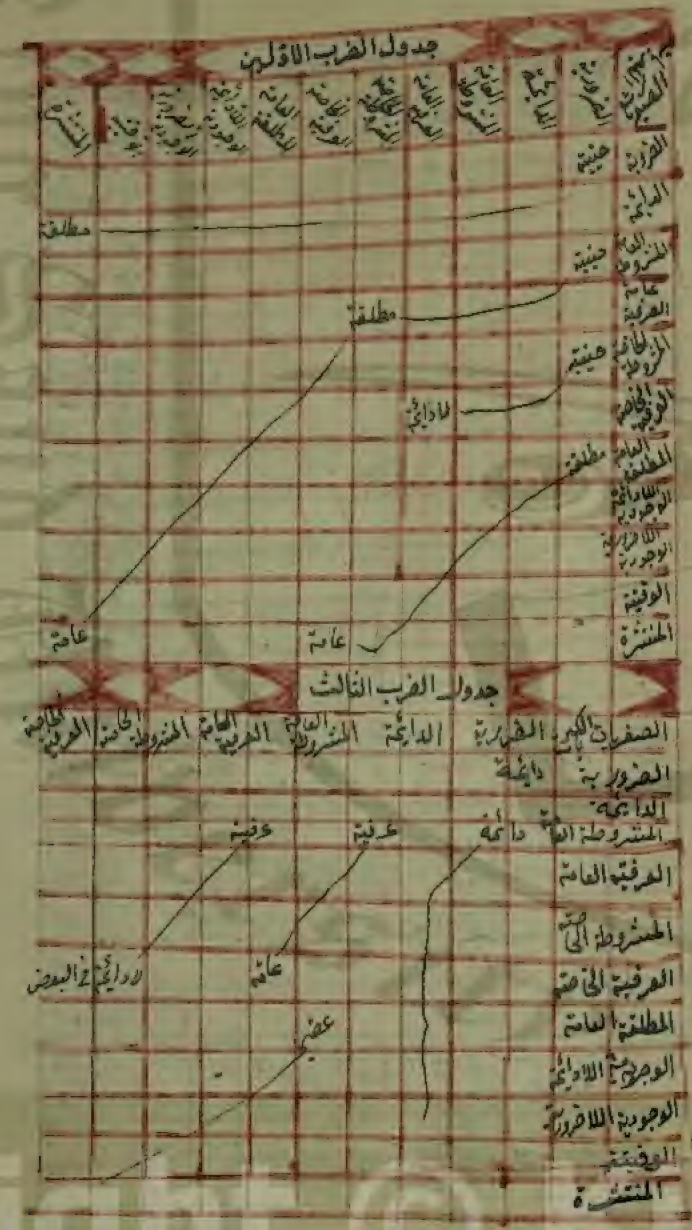 جدول الضرب الاولين
الضرورية الدائمة العامة المشروطة العامة العرفية الخاصة المشروطة الخاصة العرفية العامة المطلقة اللادائمة الوجودية اللاضرورية الوجودية الوقتية المنتشرة
الضرورية حينية
الدائمة
مطلقة
العامة المشروطة حينية
عامة العرفية
مطلقة
الخاصة المشروطة حينية
الخاصة العرفية
لادائمة
العامة المطلقة مطلقة
اللادائمة الوجودية
اللاضرورية الوجودية
الوقتية
المنتشرة
عامة
عامة
جدول الضرب الثالث
الصغريات الكبريات الضرورية الدائمة المشروطة العامة العرفية العامة المشروطة الخاصة العرفية الخاصة
الضرورية دائمة
الدائمة
المشروطة العامة دائمة عرفية عرفية
العرفية العامة
المشروطة الخاصة
العرفية الخاصة عامة لادائمة في البعض
المطلقة العامة
الوجودية اللادائمة
الوجودية اللاضرورية
الوقتية
المنتشرة